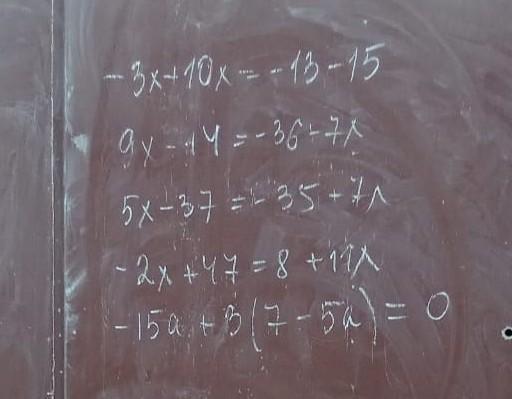 -3x+10x=-13-15
9x-14=-36-7x
5x-37=-35+7x
-2x+47=8+11x
-15a+3(7-5a)=0